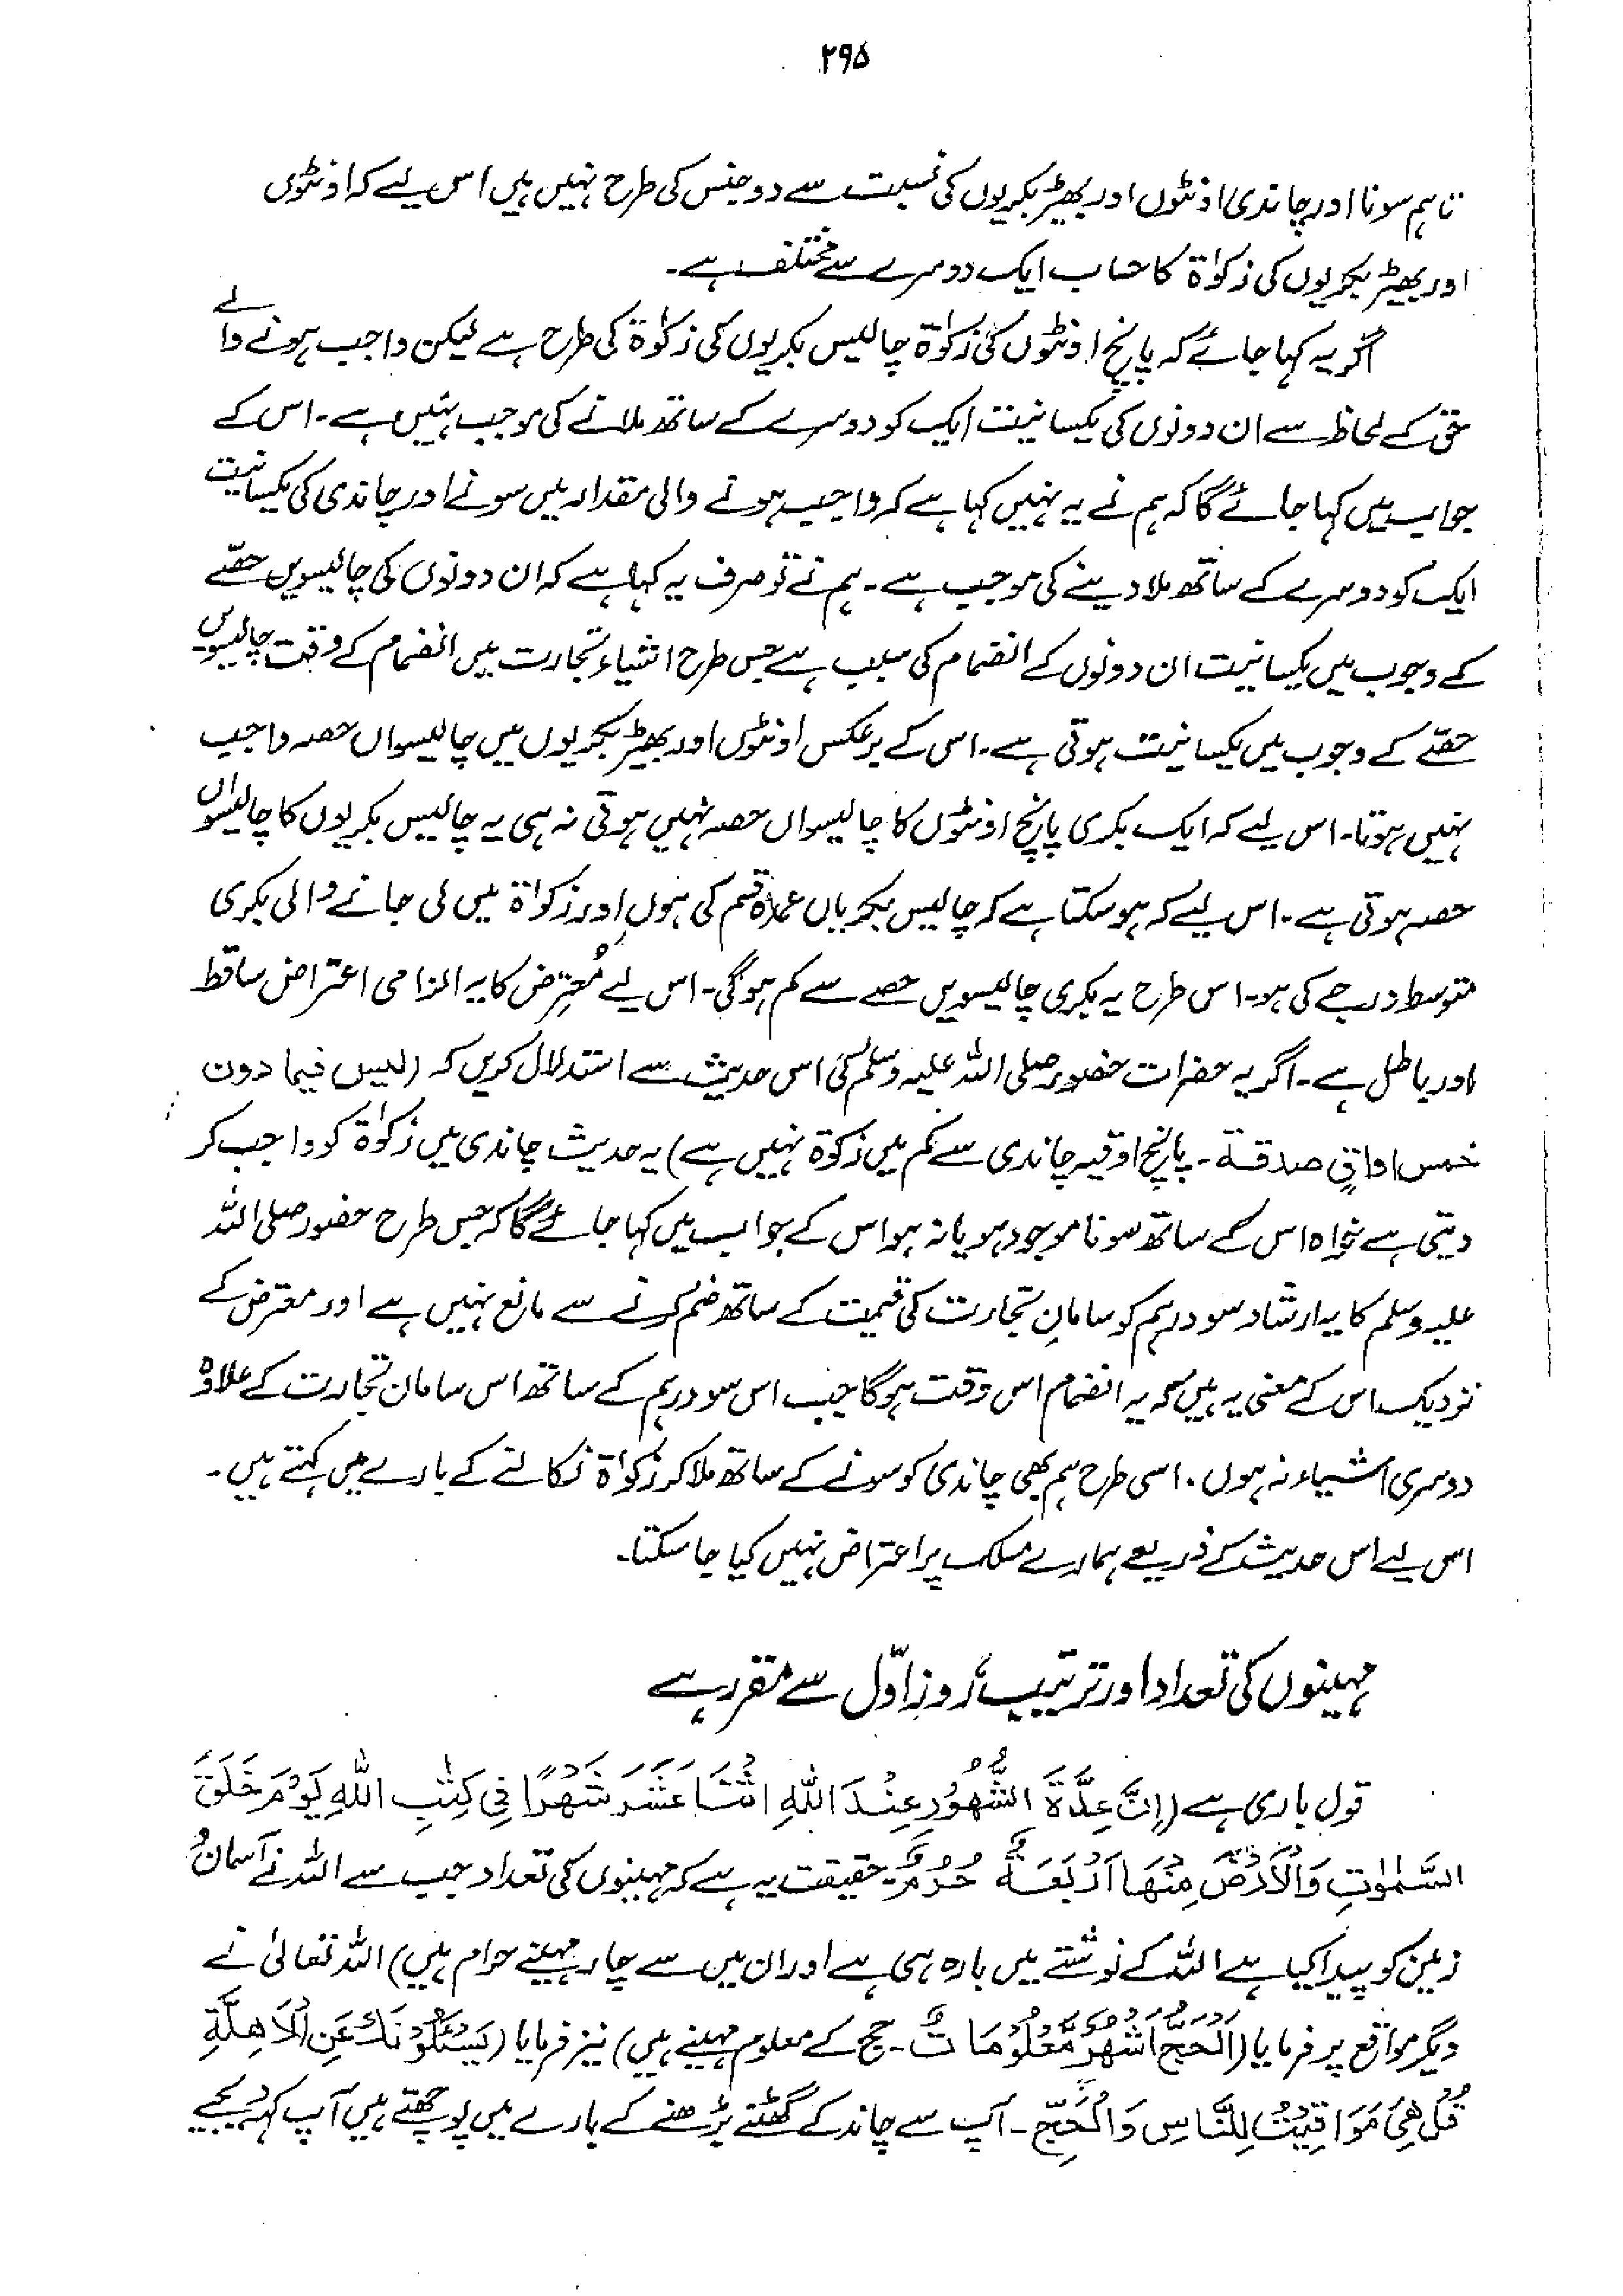 ۲۹۵
تاہم سونا اور چاندی اونٹوں اور بھیڑ بکریوں کی نسبت سے دو جنس کی طرح نہیں ہیں اس لیے کہ اونٹوں
اور بھیڑ بکریوں کی زکوٰۃ کا حساب ایک دوسرے سے مختلف ہے۔
اگر یہ کہا جائے کہ پانچ اونٹوں کی زکوٰۃ چالیس بکریوں کی زکوٰۃ کی طرح ہے لیکن واجب ہونے والے
حق کے لحاظ سے ان دونوں کی یکسانیت ایک کو دوسرے کے ساتھ ملانے کی موجب نہیں ہے۔ اس کے
جواب میں کہا جائے گا کہ ہم نے یہ نہیں کہا ہے کہ واجب ہونے والی مقدار میں سونے اور چاندی کی یکسانیت
ایک کو دوسرے کے ساتھ ملا دینے کی موجب ہے۔ ہم نے تو صرف یہ کہا ہے کہ ان دونوں کی چالیسویں حصّے
کے وجوب میں یکسانیت ان دونوں کے انضمام کی سبب ہے جس طرح اشیاء تجارت میں انضمام کے وقت چالیسویں
حصّے کے وجوب میں یکسانیت ہوتی ہے۔ اس کے برعکس اونٹوں اور بھیڑ بکریوں میں چالیسواں حصہ واجب
نہیں ہوتا۔ اس لیے کہ ایک بکری پانچ اونٹوں کا چالیسواں حصہ نہیں ہوتی نہ ہی یہ چالیس بکریوں کا چالیسواں
حصہ ہوتی ہے۔ اس لیے کہ ہو سکتا ہے کہ چالیس بکریاں عمدہ قسم کی ہوں اور زکوٰۃ میں لی جانے والی بکری
متوسط درجے کی ہو۔ اس طرح یہ بکری چالیسویں حصے سے کم ہوگی۔ اس لیے مُعترِض کا یہ الزامی اعتراض ساقط
اور باطل ہے۔ اگر یہ حضرات حضور صلی اللہ علیہ وسلم کی اس حدیث سے استدلال کریں کہ (لیس فیما دون
خمس اواقٍ صدقة۔ پانچ اوقیہ چاندی سے کم میں زکوٰۃ نہیں ہے) یہ حدیث چاندی میں زکوٰۃ کو واجب کر
دیتی ہے خواہ اس کے ساتھ سونا موجود ہو یا نہ ہو اس کے جواب میں کہا جائے گا کہ جس طرح حضور صلی اللہ
علیہ وسلم کا یہ ارشاد سو درہم کو سامانِ تجارت کی قیمت کے ساتھ ضم کرنے سے مانع نہیں ہے اور معترض کے
نزدیک اس کے معنی یہ ہیں کہ یہ انضمام اس وقت ہوگا جب اس سو درہم کے ساتھ اس سامان تجارت کے علاوہ
دوسری اشیاء نہ ہوں۔ اسی طرح ہم بھی چاندی کو سونے کے ساتھ ملا کر زکوٰۃ نکالنے کے بارے میں کہتے ہیں۔
اس لیے اس حدیث کے ذریعے ہمارے مسلک پر اعتراض نہیں کیا جا سکتا۔
مہینوں کی تعداد اور ترتیب، روزِ اوّل سے مقرر ہے
قول باری ہے (اِنَّ عِدَّةَ الشُّهُوْرِ عِنْدَ اللّٰهِ اثْنَا عَشَرَ شَهْرًا فِیْ کِتٰبِ اللّٰهِ یَوْمَ خَلَقَ
السَّمٰوٰتِ وَالْاَرْضَ مِنْهَا اَرْبَعَةٌ حُرُمٌ۔ حقیقت یہ ہے کہ مہینوں کی تعداد جب سے اللہ نے آسمان و
زمین کو پیدا کیا ہے اللہ کے نوشتے میں بارہ ہی ہے اور ان میں سے چار مہینے حرام ہیں) اللہ تعالیٰ نے
دیگر مواقع پر فرمایا (اَلْحَجُّ اَشْهُرٌ مَّعْلُوْمَاتٌ۔ حج کے معلوم مہینے ہیں) نیز فرمایا (یَسْئَلُوْنَكَ عَنِ الْاَهِلَّةِ
قُلْ هِیَ مَوَاقِیْتُ لِلنَّاسِ وَالْحَجِّ۔ آپ سے چاند کے گھٹنے بڑھنے کے بارے میں پوچھتے ہیں آپ کہہ دیجیے